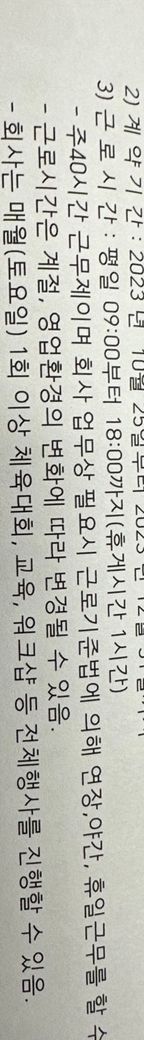 2) 계 약 기 간 : 2023 년 10월 25일부터 2023 년 12월
3) 근 로 시 간 : 평일 09:00부터 18:00까지(휴게시간 1시간)
- 주40시간 근무제이며 회사 업무상 필요시 근로기준법에 의해 연장,야간, 휴일근무를 할 수
- 근로시간은 계절, 영업환경의 변화에 따라 변경될 수 있음.
- 회사는 매월(토요일) 1회 이상 체육대회, 교육, 워크샵 등 전체행사를 진행할 수 있음.